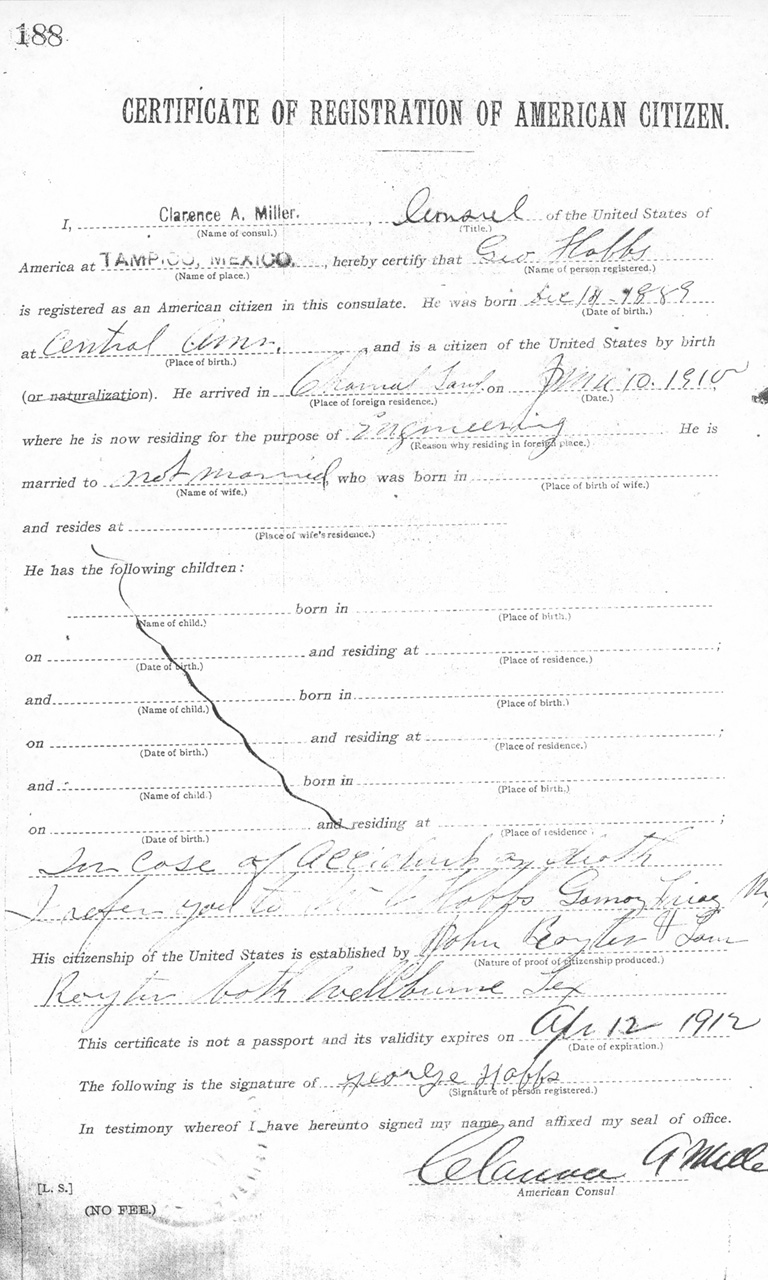 188
CERTIFICATE OF REGISTRATION OF AMERICAN CITIZEN.
I, Clarence A. Miller. , Consul of the United States of
(Name of consul.) (Title.)
America at TAMPICO, MEXICO. , hereby certify that Geo Hobbs
(Name of place.) (Name of person registered.)
is registered as an American citizen in this consulate. He was born Dec 14 - 1889
(Date of birth.)
at Central Amr. , and is a citizen of the United States by birth
(Place of birth.)
(or naturalization). He arrived in Chamal on 10. 1910
(Place of foreign residence.) (Date.)
where he is now residing for the purpose of Engineering He is
(Reason why residing in foreign place.)
married to not married, who was born in
(Name of wife.) (Place of birth of wife.)
and resides at
(Place of wife's residence.)
He has the following children:
born in
(Name of child.) (Place of birth.)
on and residing at ;
(Date of birth.) (Place of residence.)
and born in
(Name of child.) (Place of birth.)
on and residing at ;
(Date of birth.) (Place of residence.)
and born in
(Name of child.) (Place of birth.)
on and residing at ;
(Date of birth.) (Place of residence.)
In case of Accident or death
I refer you to Hobbs
His citizenship of the United States is established by John Royter &
(Nature of proof of citizenship produced.)
Royter both Wellburne Tex
This certificate is not a passport and its validity expires on Apr 12 1912
(Date of expiration.)
The following is the signature of George Hobbs
(Signature of person registered.)
In testimony whereof I have hereunto signed my name and affixed my seal of office.
Clarence A Mille
American Consul
[L. S.]
(NO FEE.)